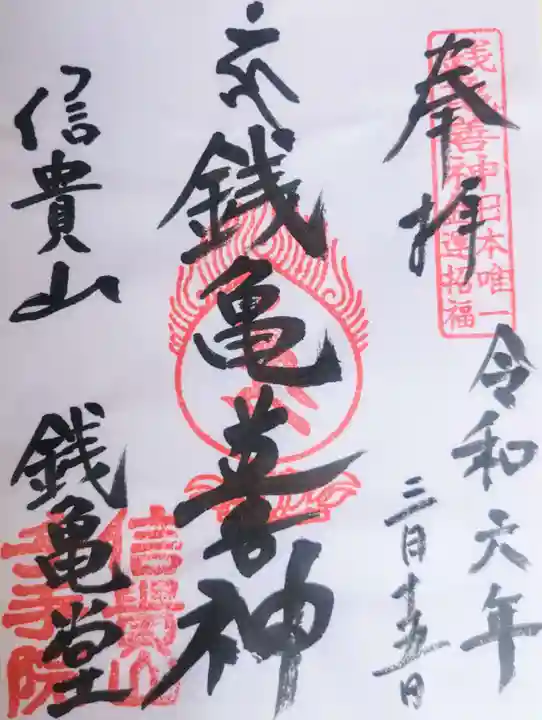 奉拝
銭亀善神
日本唯一
金運招福
令和六年
三月十五日
銭亀善神
信貴山
銭亀堂
信貴山
千手院